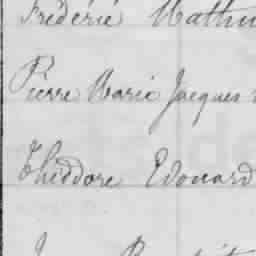 Frédéric Mathu
Pierre Marie Jacques
Théodore Edouard